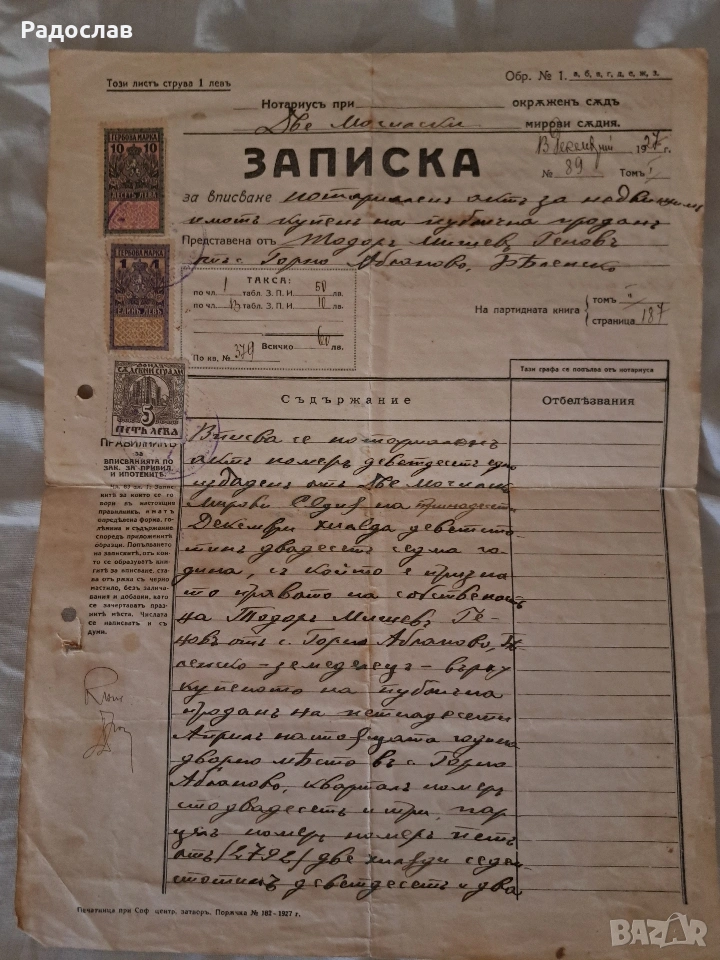 Радослав
Този листъ струва 1 левъ
Обр. № 1. а, б, в, г, д, е, ж, з.
Нотариусъ при окрѫженъ сѫдъ
Две Могилски мирови сѫдия.
ГЕРБОВА МАРКА
10 10
ДЕСЕТЬ ЛЕВА
ЗАПИСКА
13 Декемврий 1927 г.
№ 89 Томъ I
за вписване нотариаленъ актъ за недвижимъ
имотъ купенъ на публична проданъ
Представена отъ Тодоръ Мишевъ Геновъ
отъ с. Горно Абланово, Бѣленско
ГЕРБОВА МАРКА
1 1
ЕДИНЪ ЛЕВЪ
ТАКСА:
по чл. 1 табл. З. П. И. 50 лв.
по чл. 13 табл. З. П. И. 10 лв.
Всичко 60 лв.
По кв. № 379
На партидната книга
томъ II
страница 187
ФОНДЪ
СѪДЕБНИ СГРАДИ
5
ПЕТЬ ЛЕВА
Тази графа се попълва отъ нотариуса
Съдържание
Отбелѣзвания
ПРАВИЛНИКЪ
за
ВПИСВАНИЯТА ПО
ЗАК. ЗА ПРИВИЛ.
И ИПОТЕКИТѢ.
Чл. 67 ал. I: Записки
тѣ за които се го
вори въ настоящия
правилникъ, иматъ
опредѣлена форма, го
лѣмина и съдържание
споредъ приложенитѣ
образци. Попълването
на записките, отъ кои
то се образуватъ кни
гитѣ за вписване, ста
ва отъ ржка съ черно
мастило, безъ заличa
вания и добавки, като
се зачертаватъ праз
нитѣ мѣста. Числата
се написватъ и съ
думи.
Вписва се нотариаленъ
актъ номеръ деветдесетъ едно
издаденъ отъ Две Могилски
Мирови Сѫдия на тринадесети
Декемврий хиляда деветсто
тинъ двадесеть седма го
дина, съ който е призна
то правото на собственость
на Тодоръ Мишевъ Ге
новъ отъ с. Горно Абланово, Бѣ
ленско - земеделецъ - върху
купеното на публична
проданъ на петнадесети
Априлъ настоящата година
дворно мѣсто въ с. Горно
Абланово, кварталъ номеръ
сто двадесеть и три, пар
целъ номеръ номеръ петь
отъ /2792/ две хиляди седем
стотинъ деветдесетъ и два
Печатница при Соф. центр. затворъ. Поржчка № 182 - 1927 г.
BAZAR